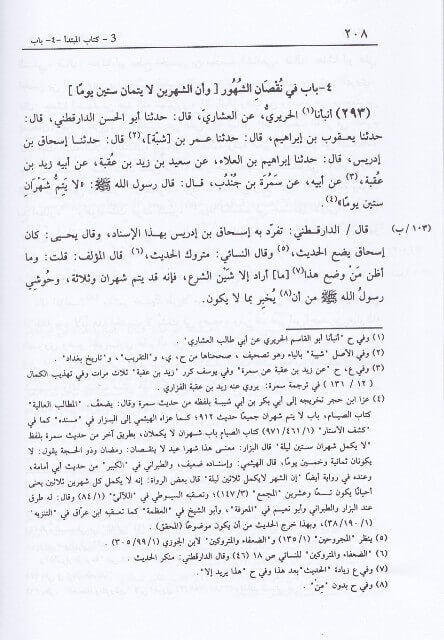 ٢٠٨
3 - كتاب المبتدأ -٤- باب
٤- باب في نُقصَانِ الشهُور [ وأن الشهرين لا يتمان ستين يوماً ]
(٢٩٣) أنبأنا(١) الحريريُّ، عن العشاريّ، قال: حدثنا أبو الحسن الدارقطني، قال:
حدثنا يعقوب بن إبراهيم، قال: حدثنا عمر بن [شبّة]،(٢) قال: حدثنا إسحاق بن
إدريس، قال: حدثنا إبراهيم بن العلاء، عن سعيد بن زيد بن عقبة، عن أبيه زيد بن
عُقبة،(٣) عن أبيه، عن سَمُرَة بن جُنْدُب، قال: قال رسول الله ﷺ: «لا يَتِمُّ شَهْرَانِ
ستين يوماً»(٤)
(١٠٣/ب)
قال / الدارقطني: تفرّد به إسحاق بن إدريس بهذا الإسناد، وقال يحيى: كان
إسحاق يضع الحديث،(٥) وقال النسائي: متروك الحديث،(٦) قال المؤلف: قلت: وما
أظن مَنْ وضع هذا(٧) [ما] أراد إلا شَيْن الشرع، فإنه قد يتم شهران وثلاثة، وحُوشِي
رسولُ الله ﷺ من أن(٨) يُخبِر بما لا يكون.
(١) وفي ح "أنبأنا أبو القاسم الحريري عن أبي طالب العشاري".
(٢) وفي الأصل "شيبة" بالياء وهو تصحيف، صححناها من ح، ي، و"التقريب"، و"تاريخ بغداد".
(٣) وفي ع، ح "عن زيد بن عقبة عن سمرة" وفي يوسف كرر "زيد بن عقبة" ثلاث مرات وفي تهذيب الكمال
(١٢ / ١٣١) في ترجمة سمرة: يروي عنه زيد بن عقبة الفزاري.
(٤) عزا ابن حجر تخريجه إلى أبي بكر بن أبي شيبة بلفظه من حديث سمرة وقال: يضعّف. "المطالب العالية"
كتاب الصيام، باب لا يتم شهران جميعًا حديث ٩١٢؛ كما عزاه الهيثمي إلى البزار في "مسنده" كما في
"كشف الأستار" (٩٧١/٤٦١/١) كتاب الصيام باب شهران لا يكملان، بطريق آخر من حديث سمرة بلفظ
"لا يكمل شهران ستين ليلة" قال البزار: معنى هذا شهرا عيد لا ينقصان: رمضان وذو الحجة يقول: لا
يكونان ثمانية وخمسين يومًا، قال الهيثمي: وإسناده ضعيف، والطبراني في "الكبير" من حديث أبي أمامة،
وعنده في رواية أيضًا "إن الشهر لايكمل ثلاثين ليلة" قال بعض الرواة: إنه لا يكمل كل شهرين ثلاثين يعنى
أحيانًا يكون تسعًا وعشرين "المجمع" (١٤٧/٣)؛ وتعقبه السيوطي في "اللآلئ" (٨٤/١) وقال: له طرق
عند البزار والطبراني وأبو نعيم في "المعرفة" وأبو الشيخ في "العظمة" كما تعقبه ابن عراق في "التنزيه"
(١٩٠/٣٨/١)، وبهذا خرج الحديث من أن يكون موضوعًا (المحقق).
(٥) ينظر "المجروحين" (١٣٥/١) و"الضعفاء والمتروكين" لابن الجوزي (٣٠٥/٩٩/١)
(٦) "الضعفاء والمتروكين" للنسائي ص ١٨ (٤٦) وقال الدارقطني: منكر الحديث.
(٧) وفي ع زيادة "الحديث" بعد هذا وفي ح "هذا يريد إلا".
(٨) وفي ح بدون "مِنْ".